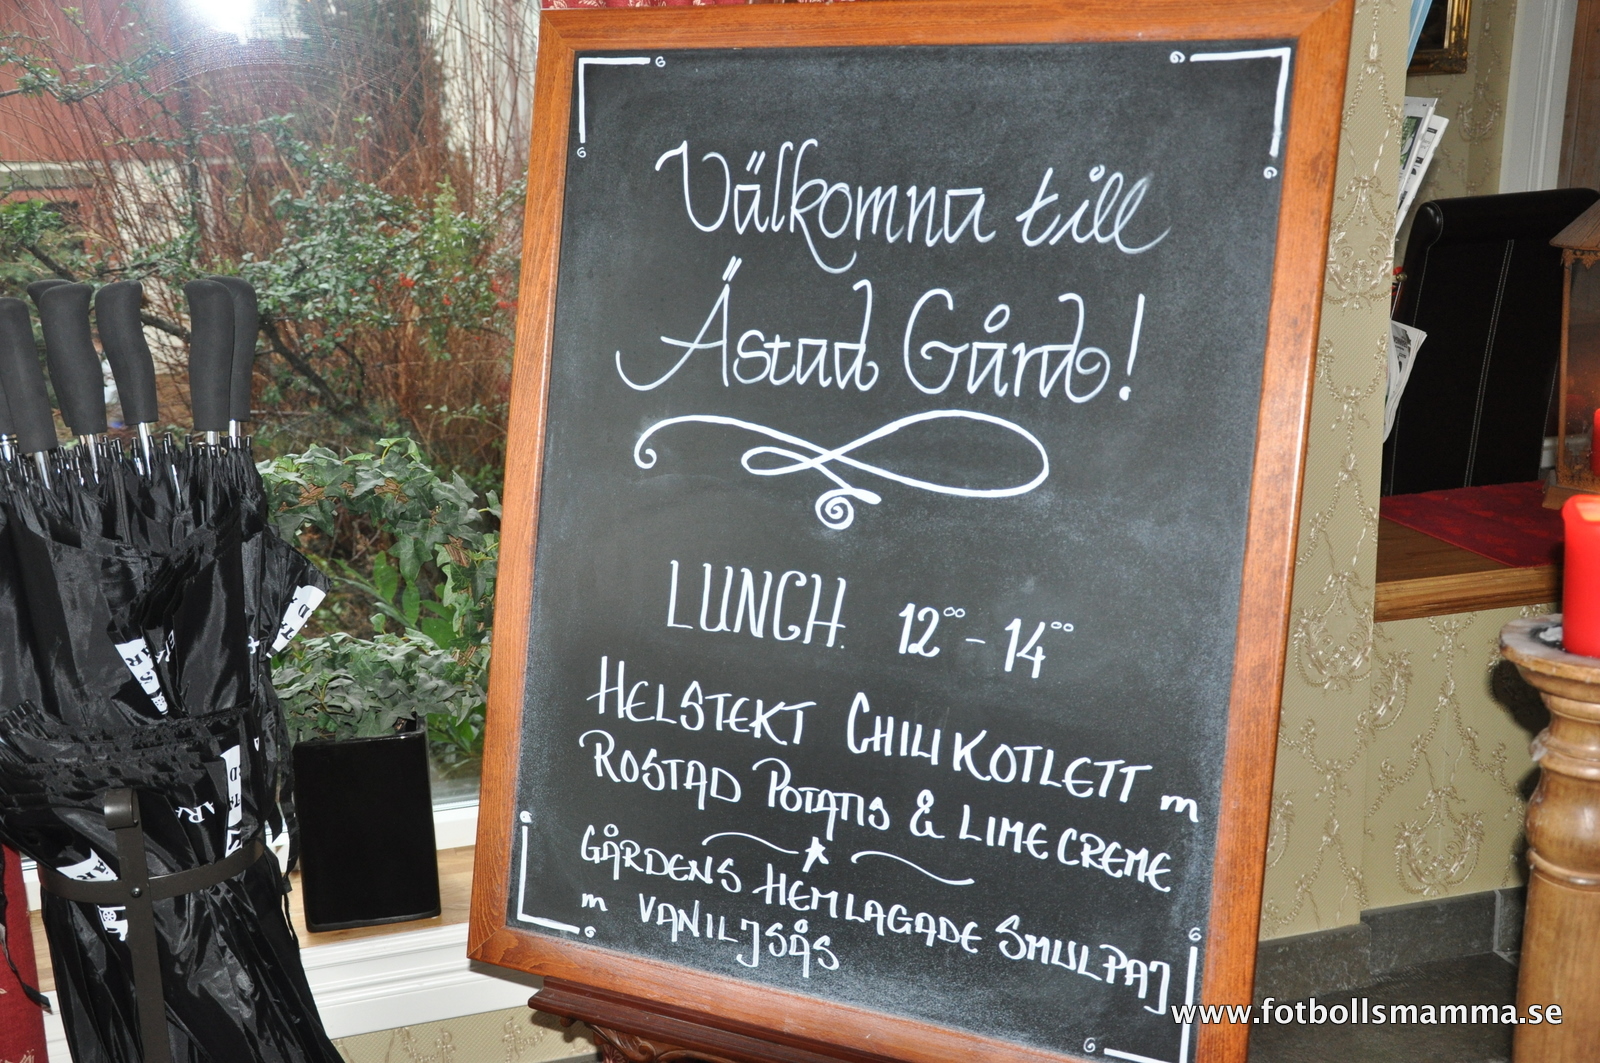 Välkomna till
Ästad Gård!
LUNCH. 12⁰⁰ - 14⁰⁰
HELSTEKT CHILIKOTLETT m
ROSTAD POTATIS & LIMECREME
GÅRDENS HEMLAGADE SMULPAJ
m VANILJSÅS
www.fotbollsmamma.se